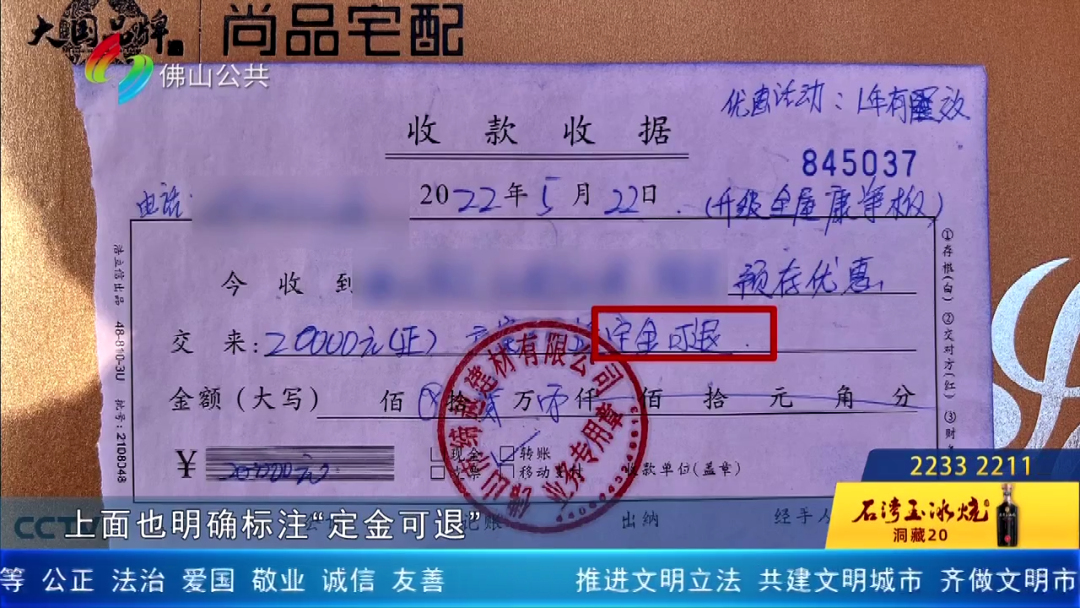 大国品牌 尚品宅配
佛山公共
优惠活动：1年有效
收款收据
845037
电话
2022年5月22日
(升级全屋康净板)
今收到
预存优惠
交来：20000元(正)
定金可退.
金额（大写） 佰 拾 万 仟 佰 拾 元 角 分
¥ 20000元
现金 转账
移动支付 收款单位(盖章)
建材有限公司
业务专用章
出纳 经手人
浩立信出品 48-810-3U 批号：2108048
①存根(白) ②交对方(红) ③财
2233 2211
石湾玉冰烧
洞藏20
CCTV
上面也明确标注“定金可退”
等 公正 法治 爱国 敬业 诚信 友善 推进文明立法 共建文明城市 齐做文明市